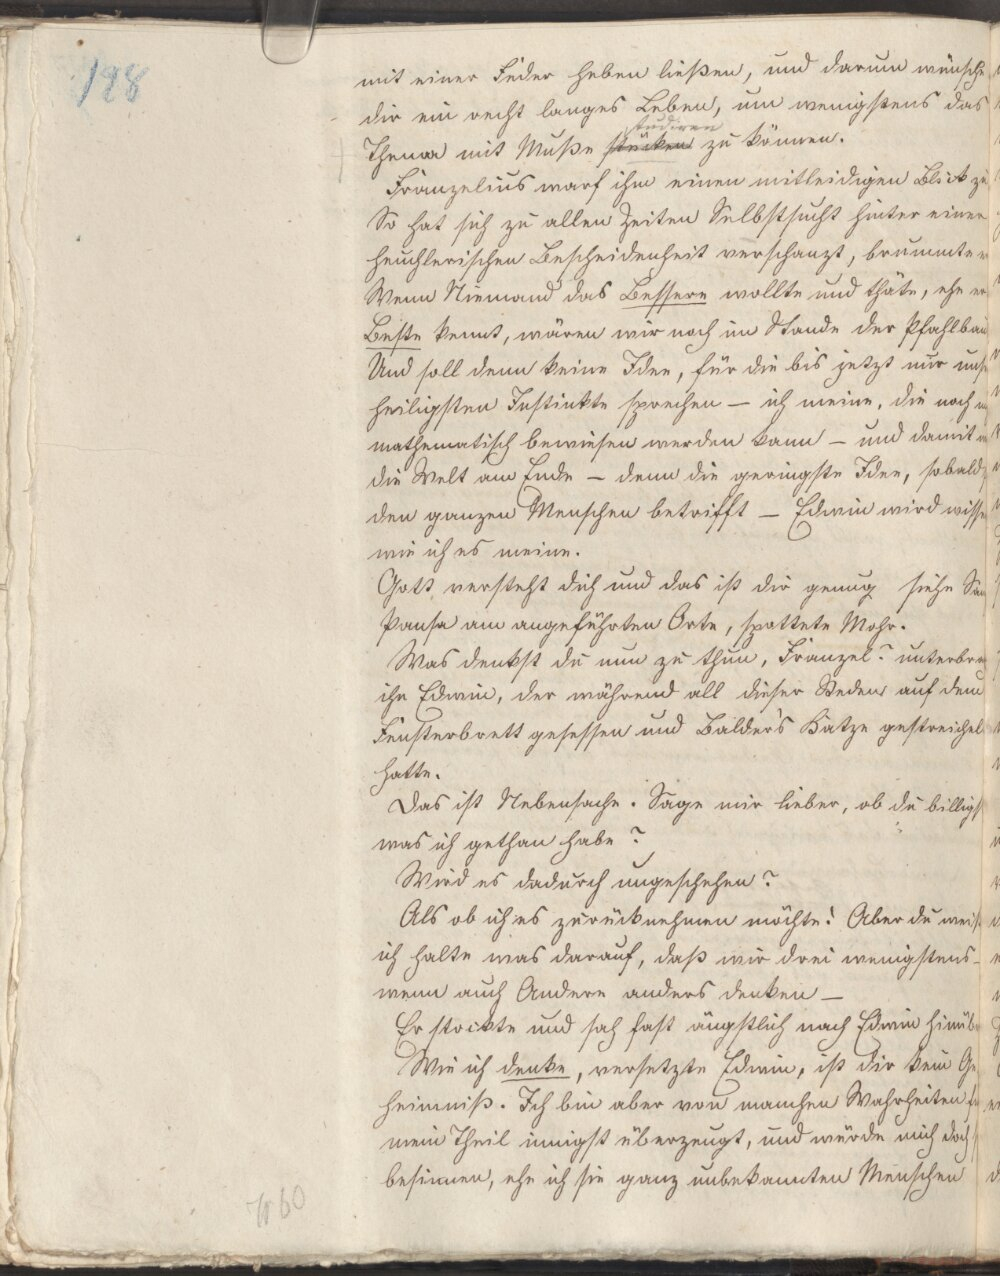 188
mit einer Feder heben ließen, und darum wünsche
dir ein recht langes Leben, um wenigstens das
studiren
Thema mit Muße zu können.
Franzelius warf ihm einen mitleidigen Blick zu
So hat sich zu allen Zeiten Selbstsucht hinter einer
heuchlerischen Bescheidenheit verschanzt, brummte er
Wenn Niemand das Bessere wollte und thäte, ehe er
Beste kennt, wären wir noch im Stande der Pfahlbau
Und soll denn keine Idee, für die bis jetzt nur uns
heiligsten Instinkte sprechen – ich meine, die noch
mathematisch bewiesen werden kann – und damit
die Welt am Ende – denn die geringste Idee, sobald
den ganzen Menschen betrifft – Edwin wird wisse
wie ich es meine.
Gott versteht dich und das ist dir genug siehe San
Pansa am angeführten Orte, spottete Mohr.
Was denkst du nun zu thun, Franzel? unterbra
ihn Edwin, der während all dieser Reden auf dem
Fensterbrett gesessen und Balder's Katze gestreichel
hatte.
Das ist Nebensache. Sage mir lieber, ob du billigs
was ich gethan habe?
Wird es dadurch ungeschehen?
Als ob ich es zurücknehmen möchte! Aber du weiß
ich halte was darauf, daß wir drei wenigstens –
wenn auch Andere anders denken –
Er stockte und sah fast ängstlich nach Edwin hinüb
Wie ich denke, versetzte Edwin, ist dir kein Ge
heimniß. Ich bin aber von manchen Wahrheiten für
mein Theil innigst überzeugt, und würde mich doch
besinnen, ehe ich sie ganz unbekannten Menschen
60